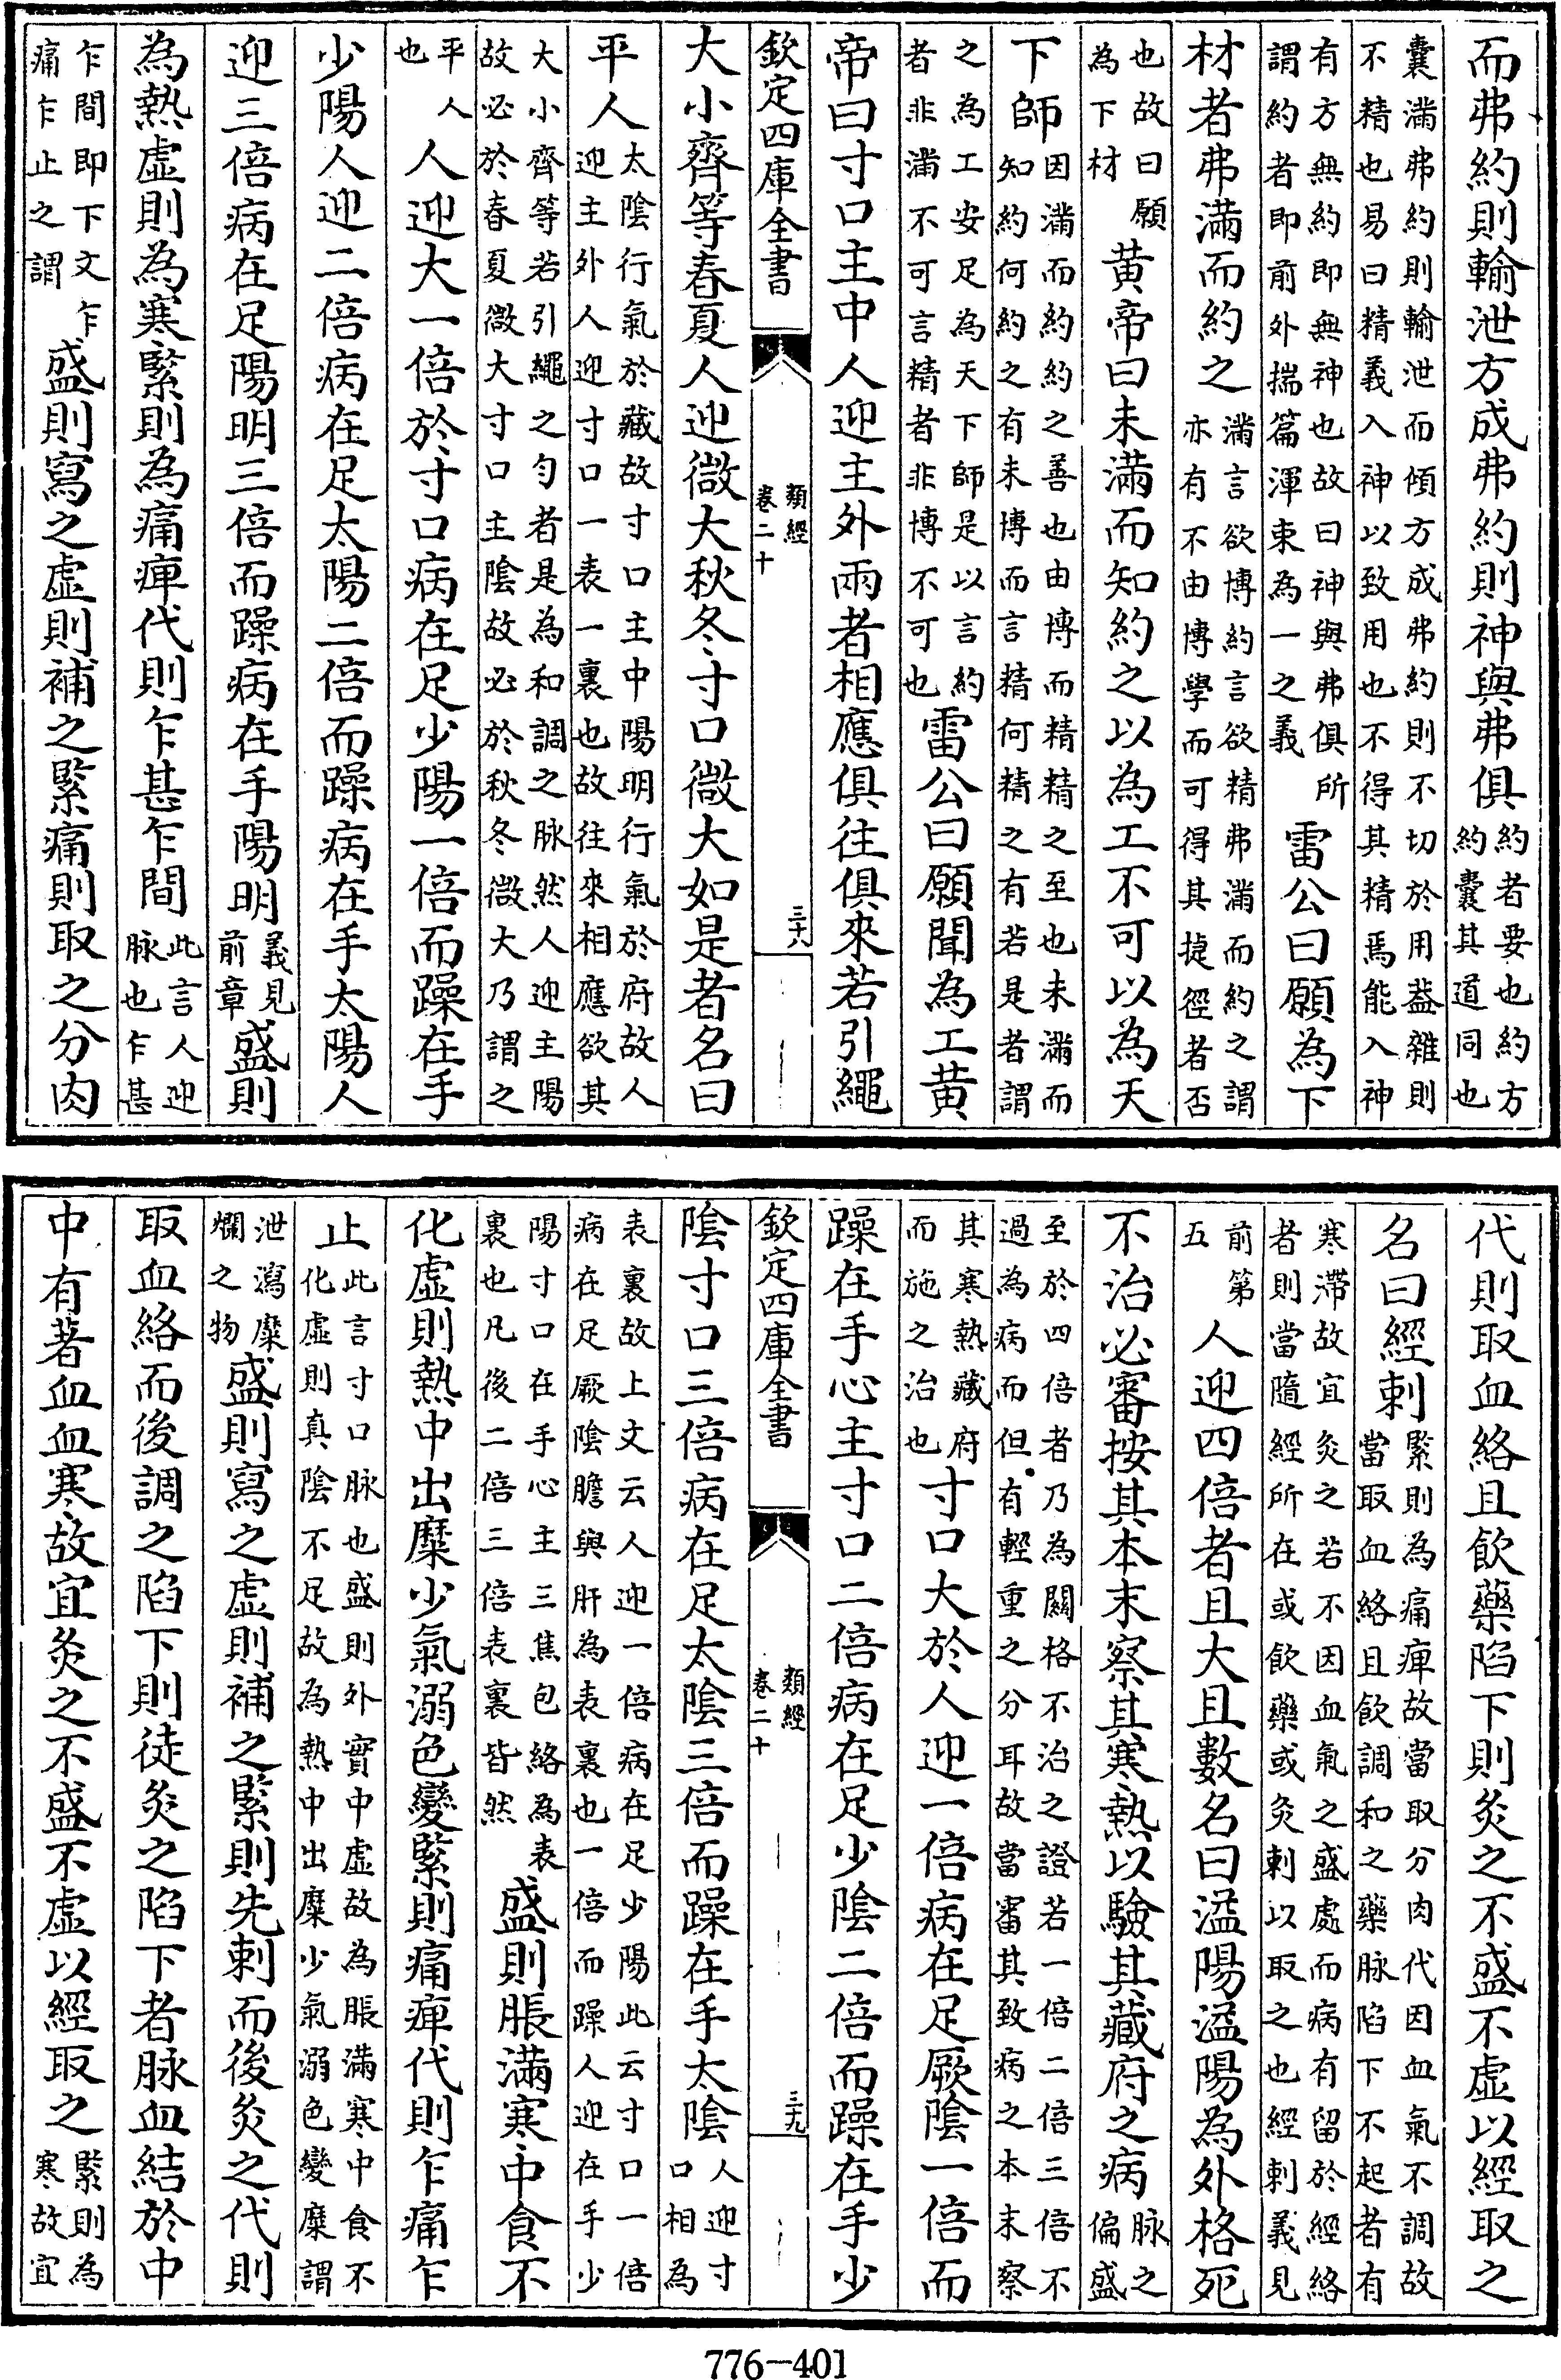 而弗約則輸泄方成弗約則神與弗俱
約者要也約方
約囊其道同也
囊滿弗約則輸泄而傾方成弗約則不切於用葢雜則
不精也易曰精義入神以致用也不得其精焉能入神
有方無約即無神也故曰神與弗俱所
謂約者即前外揣篇渾束為一之義
雷公曰願為下
材者弗滿而約之
滿言欲博約言欲精弗滿而約之謂
亦有不由博學而可得其捷徑者否
也故曰願
為下材
黄帝曰未滿而知約之以為工不可以為天
下師
因滿而約約之善也由博而精精之至也未滿而
知約何約之有未博而言精何精之有若是者謂
之為工安足為天下師是以言約
者非滿不可言精者非博不可也
雷公曰願聞為工黄
帝曰寸口主中人迎主外兩者相應俱往俱來若引繩
欽定四庫全書
類經
卷二十
三十八
大小齊等春夏人迎微大秋冬寸口微大如是者名曰
平人
太陰行氣於藏故寸口主中陽明行氣於府故人
迎主外人迎寸口一表一裏也故往來相應欲其
大小齊等若引繩之勻者是為和調之脉然人迎主陽
故必於春夏微大寸口主陰故必於秋冬微大乃謂之
平人
也
人迎大一倍於寸口病在足少陽一倍而躁在手
少陽人迎二倍病在足太陽二倍而躁病在手太陽人
迎三倍病在足陽明三倍而躁病在手陽明
義見
前章
盛則
為熱虛則為寒緊則為痛痺代則乍甚乍間
此言人迎
脉也乍甚
乍間即下文乍
痛乍止之謂
盛則寫之虛則補之緊痛則取之分肉
代則取血絡且飲藥陷下則灸之不盛不虛以經取之
名曰經刺
緊則為痛痺故當取分肉代因血氣不調故
當取血絡且飲調和之藥脉陷下不起者有
寒滯故宜灸之若不因血氣之盛處而病有留於經絡
者則當隨經所在或飲藥或灸刺以取之也經刺義見
前第
五
人迎四倍者且大且數名曰溢陽溢陽為外格死
不治必審按其本末察其寒熱以驗其藏府之病
脉之
偏盛
至於四倍者乃為關格不治之證若一倍二倍三倍不
過為病而但有輕重之分耳故當審其致病之本末察
其寒熱藏府
而施之治也
寸口大於人迎一倍病在足厥陰一倍而
躁在手心主寸口二倍病在足少陰二倍而躁在手少
欽定四庫全書
類經
卷二十
三十九
陰寸口三倍病在足太陰三倍而躁在手太陰
人迎寸
口相為
表裏故上文云人迎一倍病在足少陽此云寸口一倍
病在足厥陰膽與肝為表裏也一倍而躁人迎在手少
陽寸口在手心主三焦包絡為表
裏也凡後二倍三倍表裏皆然
盛則脹滿寒中食不
化虛則熱中出糜少氣溺色變緊則痛痺代則乍痛乍
止
此言寸口脉也盛則外實中虛故為脹滿寒中食不
化虛則真陰不足故為熱中出糜少氣溺色變糜謂
泄瀉糜
爛之物
盛則寫之虛則補之緊則先刺而後灸之代則
取血絡而後調之陷下則徒灸之陷下者脉血結於中
中有著血血寒故宜灸之不盛不虛以經取之
緊則為
寒故宜
776-401